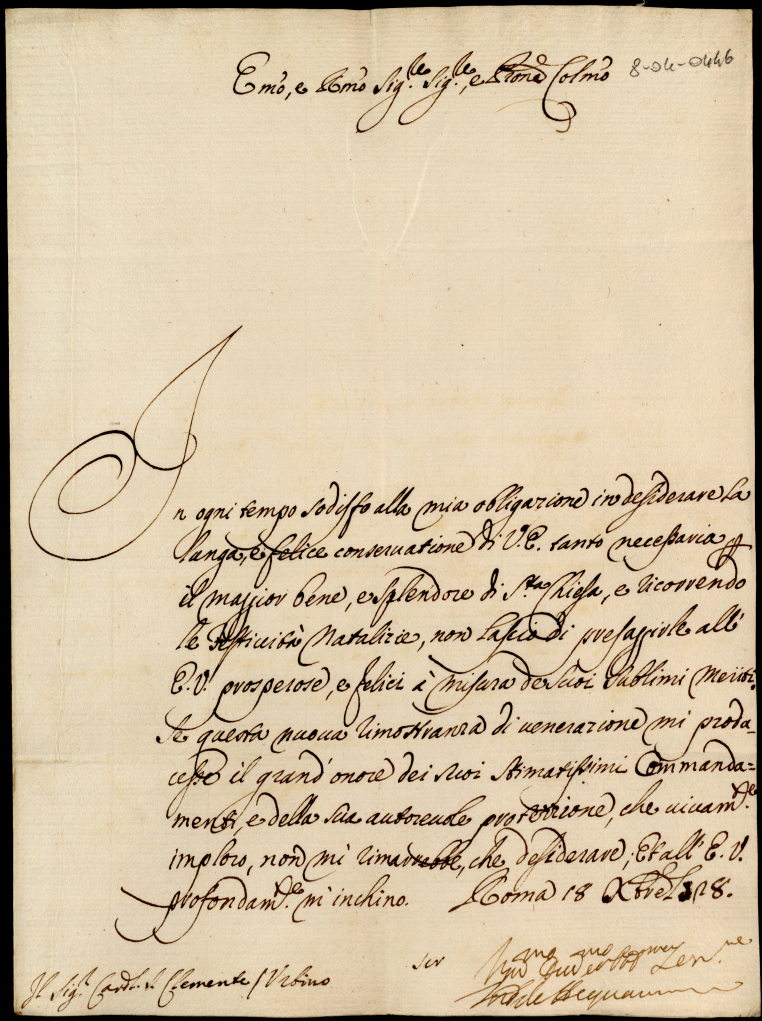 8-04-0446
Emo, e Rmo Sig.re Sig.re, e Prone Colmo
In ogni tempo sodisfo alla mia obligazione in desiderare la
lunga, e felice conservatione di V.E. tanto necessaria
il maggior bene, e splendore di S.ta Chiesa, e ricorrendo
le festività Natalizie, non lascio di presaggirle all'
E.V. prosperose, e felici à misura de suoi sublimi meriti.
Se questa nuova rimostranza di venerazione mi produ-
cesse il grand'onore dei suoi stimatissimi Commanda=
menti, e della sua autorevole protezzione, che vivam.te
imploro, non mi rimarrebbe, che desiderare; Et all'E.V.
profondam.te m'inchino. Roma 18 Xbre 1728.
Il Sig.r Card.l S. Clemente / Urbino